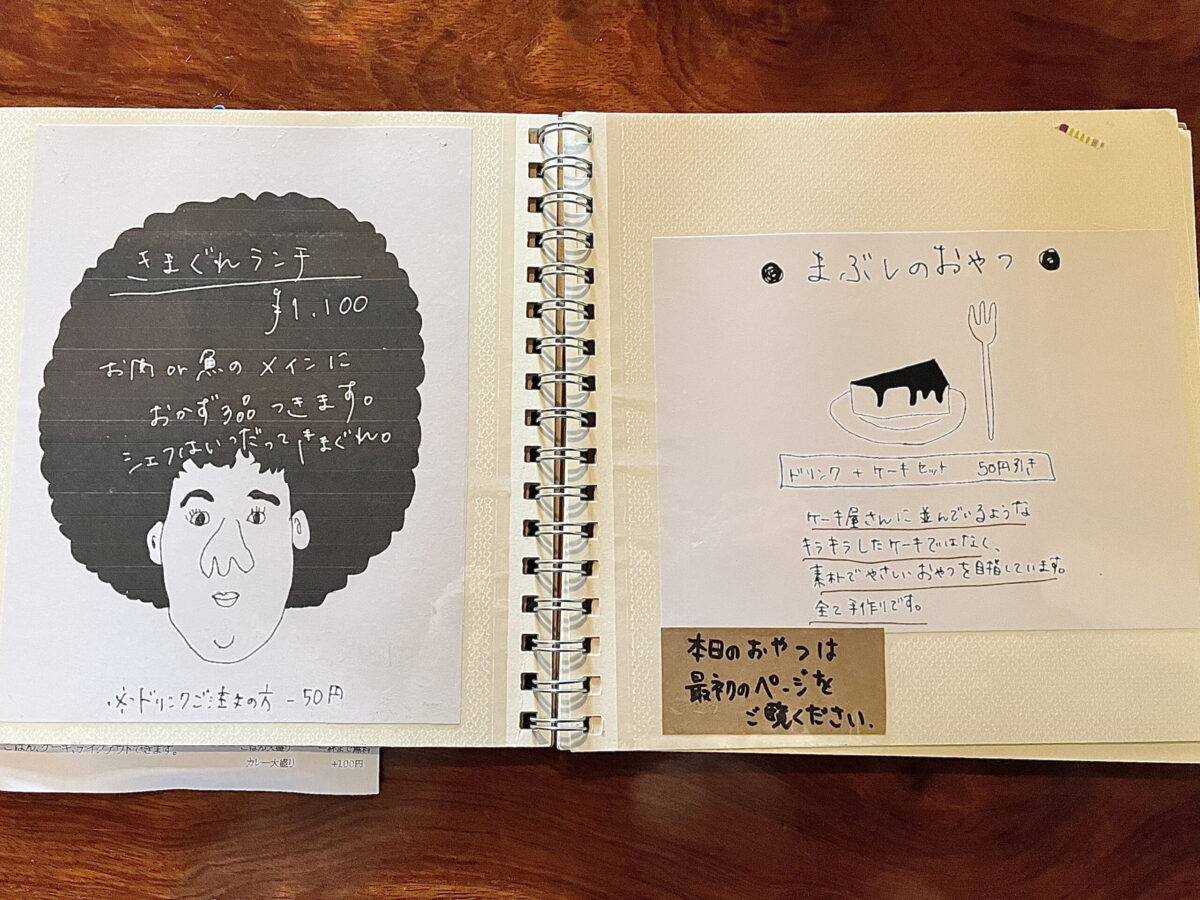 きまぐれランチ
¥1.100
お肉 or 魚の メインに
おかず3品 つきます。
シェフはいつだって きまぐれ。
※ドリンクご注文の方 -50円
ごはん、ケーキ、テイクアウトできます。
ごはん大盛り 一杯まで無料
カレー大盛り +100円
● まぶしのおやつ ●
ドリンク + ケーキセット 50円引き
ケーキ屋さんに並んでいるような
キラキラしたケーキではなく、
素朴でやさしいおやつを目指しています。
全て手作りです。
本日のおやつは
最初のページを
ご覧ください.